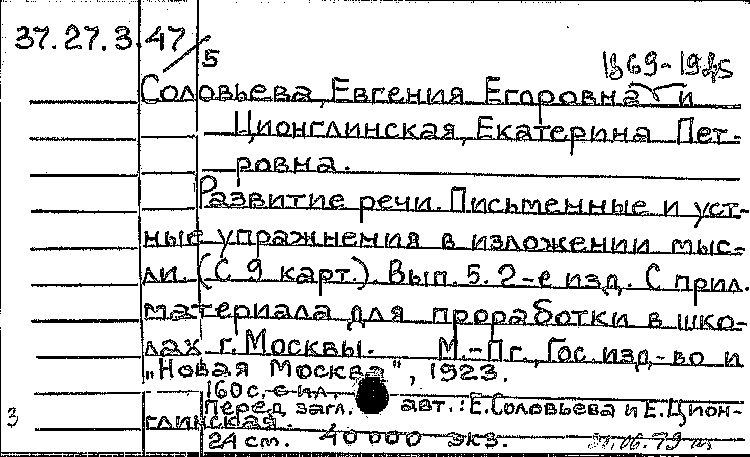 37.27.3.47/5
1869-19
Соловьева, Евгения Егоровна и
Ционглинская, Екатерина Пет-
ровна.
Развитие речи. Письменные и уст-
ные упражнения в изложении мыс-
ли. (С 9 карт.). Вып. 5. 2-е изд. С прил.
материала для проработки в шко-
лах г. Москвы. М.-Пг., Гос. изд-во и
„Новая Москва", 1923.
160 с. с ил.
Перед загл. авт.: Е. Соловьева и Е. Цион-
глинская.
24 см. 40000 экз.
3